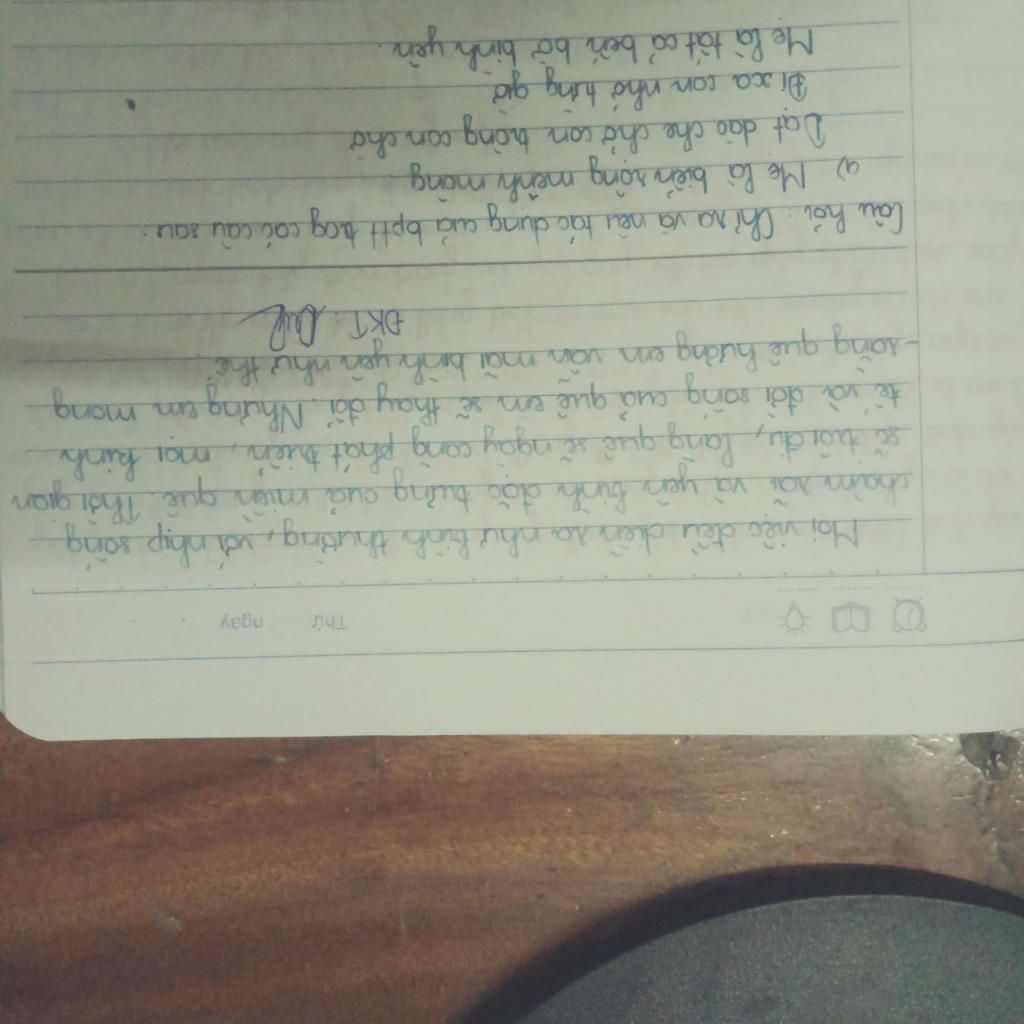 Thứ ngày
Mọi việc đều diễn ra như bình thường, với nhịp sống
chậm rãi và yên bình đặc trưng của miền quê. Thời gian
sẽ trôi đi, làng quê sẽ ngày càng phát triển, mọi kinh
tế và đời sống của quê em sẽ thay đổi. Nhưng em mong
rằng quê hương em vẫn mãi bình yên như thế.
ĐKT:
Câu hỏi: Chỉ ra và nêu tác dụng của bptt trog các câu sau:
a) Mẹ là biển rộng mênh mông
Dạt dào che chở con trông con chờ
Đi xa con nhớ từng giờ
Mẹ là tất cả bến bờ bình yên.